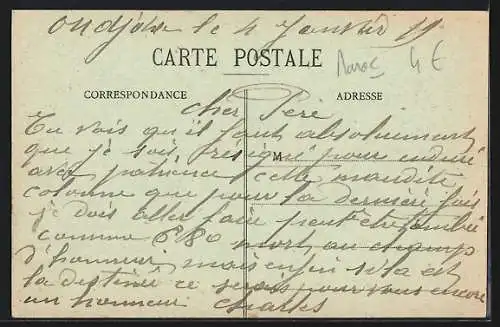 Oudjda le 4 Janvier 11
CARTE POSTALE
Maroc 4 €
CORRESPONDANCE
ADRESSE
Cher Père
M
Tu vois qu'il faut absolument
que je sois résigné pour enduré
avec patience cette maudite
colonne que pour la dernière fois
je dois aller faire peut etre
comme mort au champ
d'honneur mais enfin si la est
la destinée ce serais pour vous encore
un honneur Charles